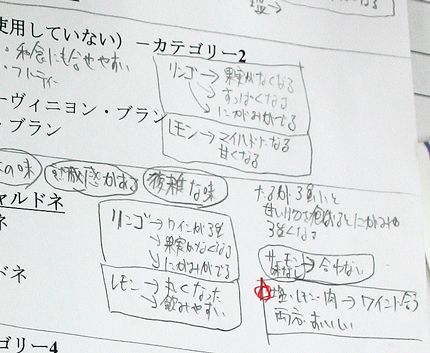 使用していない）－カテゴリー2
・和食にも合せやすい
・フルーティー
リンゴ→果実がなくなる
すっぱくなる
にがみがでる
ーヴィニヨン・ブラン
・ブラン
レモン→マイルドになる
甘くなる
の味
刺激感がある
複雑な味
ャルドネ
ネ
ドネ
リンゴ→ワインが強
→果実がなくなる
→にがみがでる
レモン→丸くなった
→飲みやすい
たるが強いと
にがみが
強くなる
サーモン
→合わない
塩・レモン・肉→ワインに合う
両方おいしい
ゴリー4